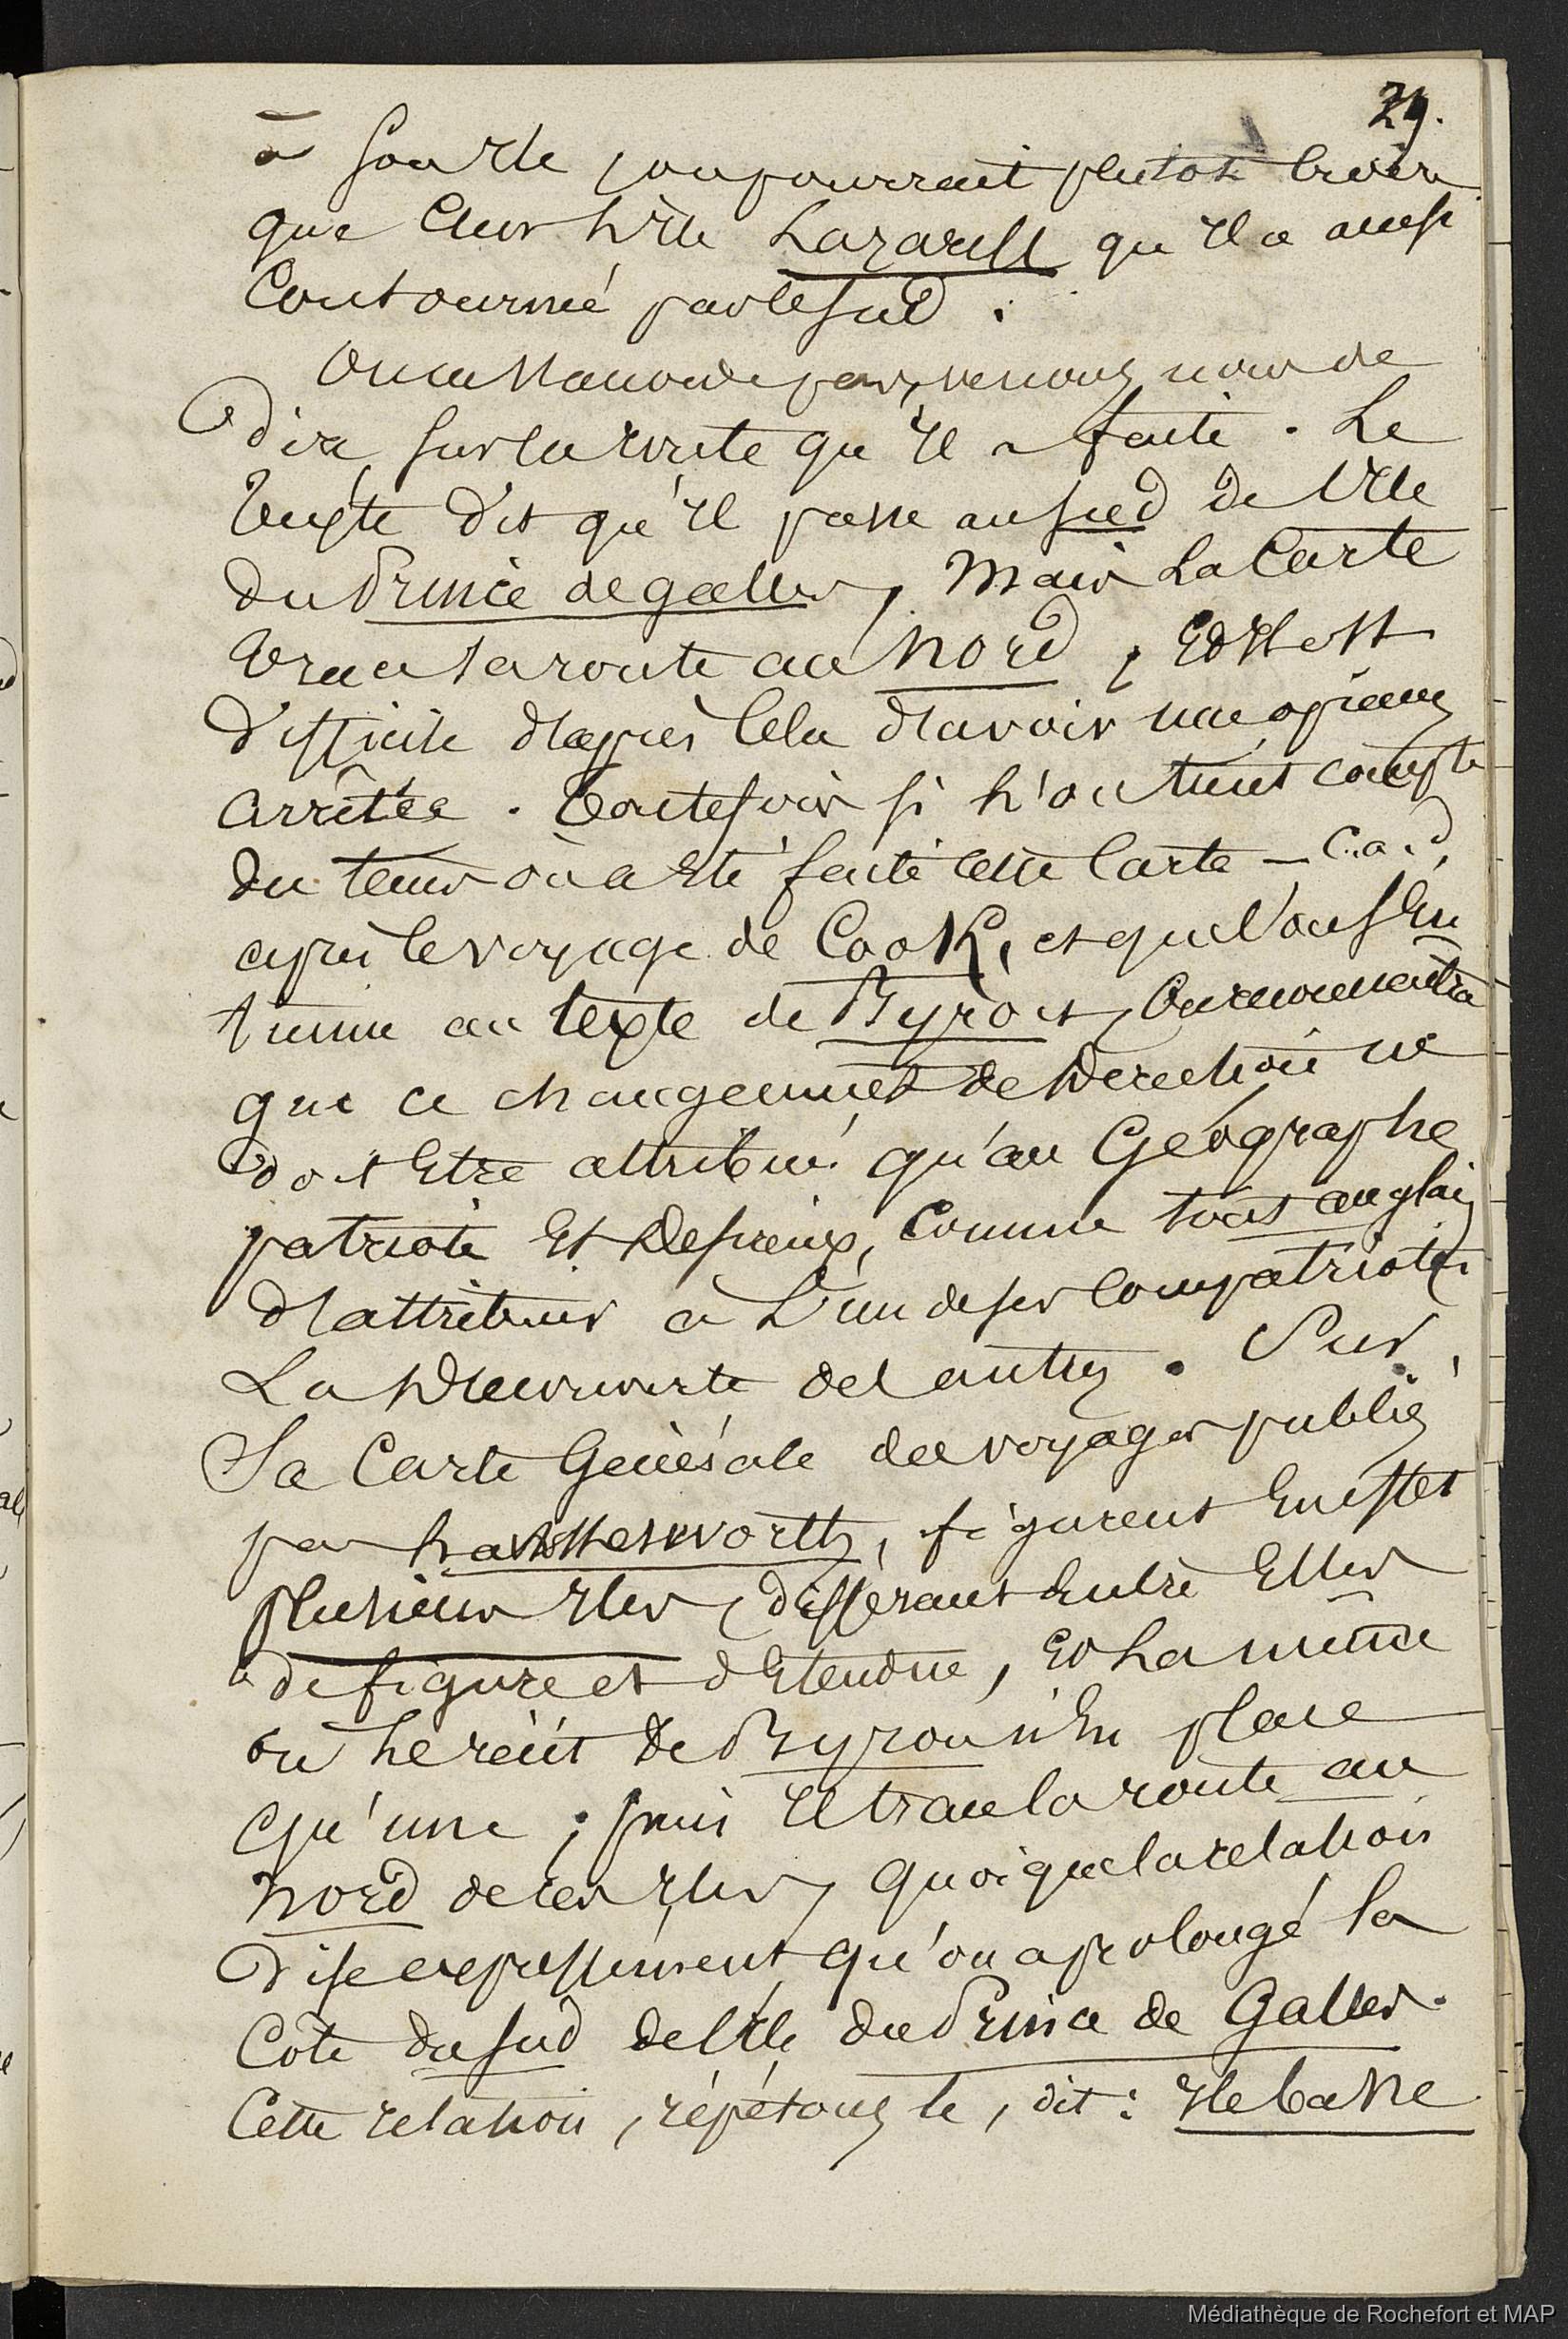 29.
à son Ile, on pourrait plutôt croire
que c'est l'Ile Lazareff qu'il a aussi
contourné par le sud.
On ne s'accorde pas, venons nous de
dire, sur la route qu'il a faite. Le
texte dit qu'il passe au sud de l'Ile
du Prince de galles, Mais La Carte
trace sa route au nord, Et Il est
difficile d'après cela d'avoir une opinion
arrêtée. Toutefois si l'on tient compte
du tems où a été faite cette carte — c.a.d.
après le voyage de Cook, et que l'on s'en
tienne au texte de Byron, On reconnaitra
que ce changement de Direction ne
doit Etre attribué qu'au Géographe
patriote Et Desireux, Comme tout anglais
d'attribuer à L'un de ses Compatriotes
La Découverte des autres. Sur
Sa Carte Générale des voyages publiés
par hawkesworth, figurent En effet
plusieurs Iles, différant Entre Elles
de figure et d'Etendue, Et La même
où Le récit de Byron n'En place
qu'une ; puis Il trace la route au
nord de ces Iles, quoique la relation
dise expressément qu'on a prolongé la
Côte du sud de l'Ile du Prince de Galles.
Cette relation, répétons le, dit : Ile basse